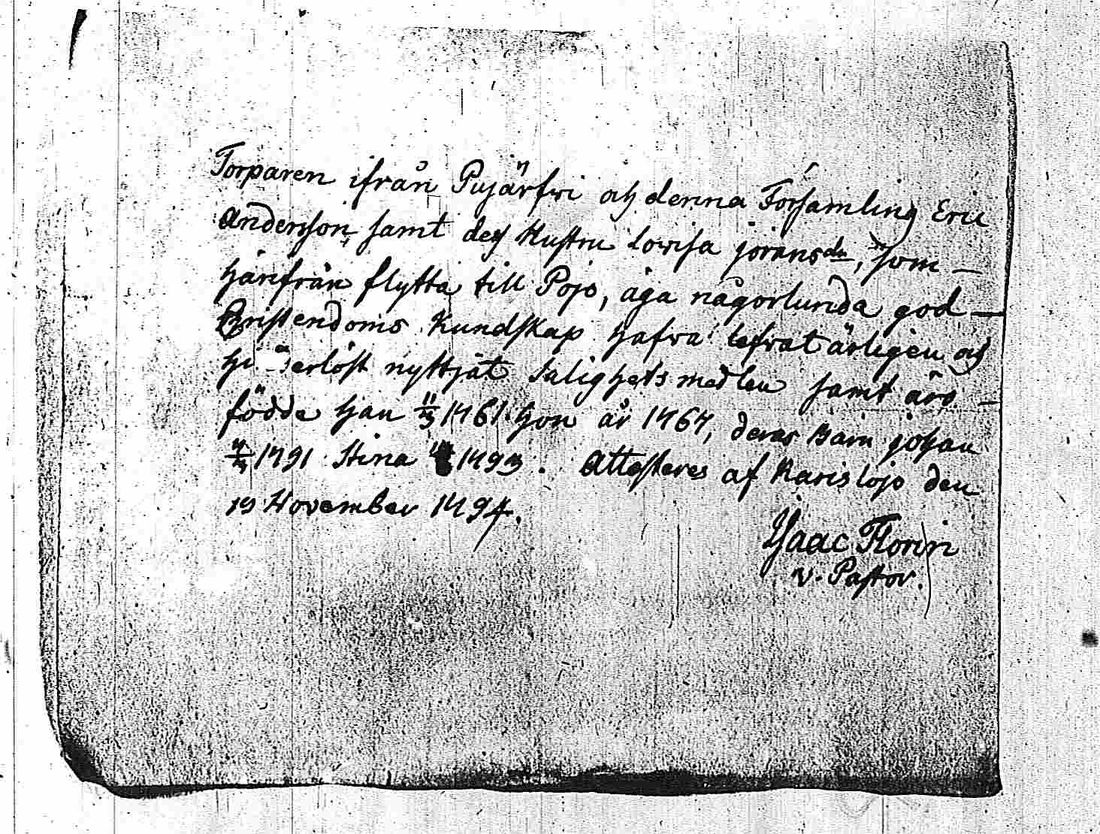 Torparen ifrån Pujärfvi af denna Församling Eric
Andersson, samt des Hustru Lovisa Jöransdr, som
härifrån flytta till Pojo, äga någorlunda god
Christendoms Kundskap hafva lefvat ärligen och
nyttjat Salighets medlen samt äro
födde han 11/3 1761. hon år 1767, deras Barn Johan
1791 Stina 1793. Attesteres af Karislojo den
19 November 1794.
Isaac Florin
v. Pastor.